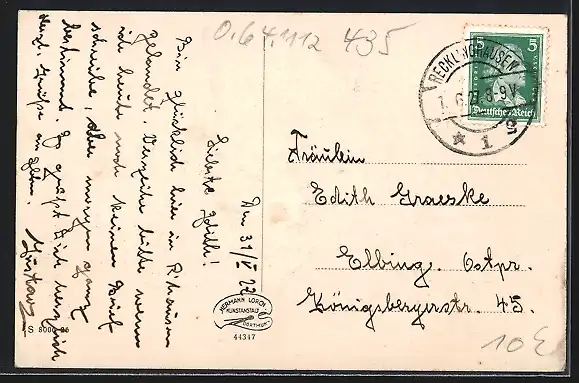 0.64.1112 435
Den 31/V 27
Liebste Edith!
Bin glücklich hier in R.hausen
gelandet. Verzeihe bitte wenn
ich heute noch keinen Brief
schreibe, aber morgen ganz
bestimmt. Es grüßt Dich herzlich
Herzl. Grüße an Eltern.
Gustav
RECKLINGHAUSEN
1.6.27.8-9V.
* 1
5 5
Deutsches Reich
Fräulein
Edith Graeske
Elbing. Ostpr.
Königsbergerstr. 45.
HERMANN LORCH
KUNSTANSTALT
DORTMUND
44347
S 8000/25
10E